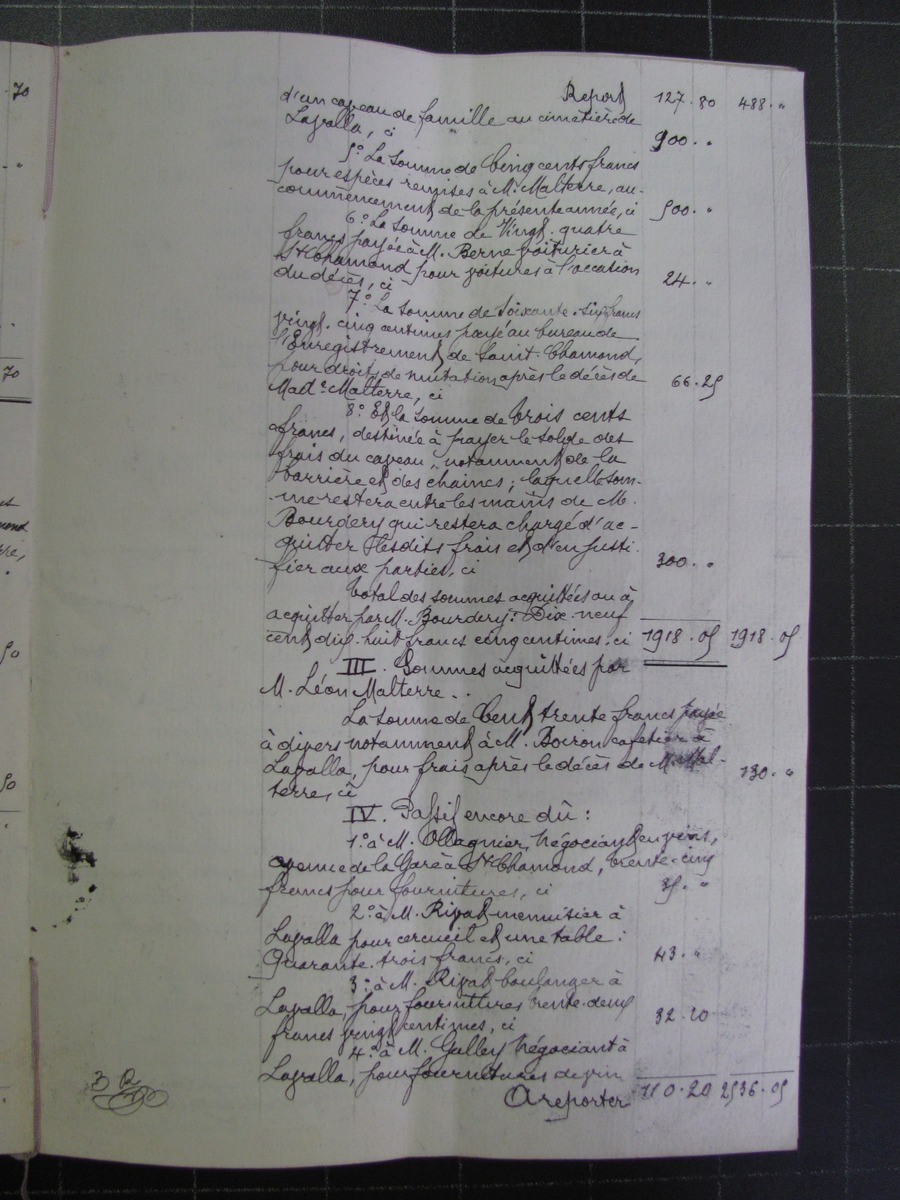 Report 127.80 488.”
d'un caveau de famille au cimetière de
Lavalla, ci 900.”
5° La somme de Cinq cents francs
pour espèces remises à M. Malterre, au
commencement de la présente année, ci 500.”
6° La somme de Vingt-quatre
francs payée à M. Berne voiturier à
St Chamond pour voitures à l'occasion
du décès, ci 24.”
7° La somme de Soixante-six francs
vingt-cinq centimes payé au bureau de
l'Enregistrement de Saint-Chamond,
pour droits de mutation après le décès de
Made Malterre, ci 66.25
8° Et la somme de trois cents
francs, destinée à payer le solde des
frais du caveau, notamment de la
barrière et des chaines; laquelle som-
-me restera entre les mains de M.
Bourdery qui restera chargé d'ac-
quitter lesdits frais et d'en justi-
fier aux parties, ci 300.”
Total des sommes acquittées ou à
acquitter par M. Bourdery: Dix-neuf
cent dix-huit francs cinq centimes. ci 1918.05 1918.05
III. Sommes acquittées par
M. Léon Malterre..
La somme de Cent trente francs payée
à divers notamment à M. Boiron cafetier à
Lavalla, pour frais après le décès de M. Mal-
terre, ci 130.”
IV. Passif encore dû:
1° à M. Ollagnier, Négociant en vins,
avenue de la Gare à St Chamond, trente-cinq
francs pour fournitures, ci 35.”
2° à M. Rivat menuisier à
Lavalla pour cercueil et une table:
Quarante-trois francs, ci 43.”
3° à M. Rivat boulanger à
Lavalla, pour fournitures trente-deux
francs vingt centimes, ci 32.20
4° à M. Galley Négociant à
Lavalla, pour fournitures de vin
A reporter 110.20 2536.05
70
70
50
50